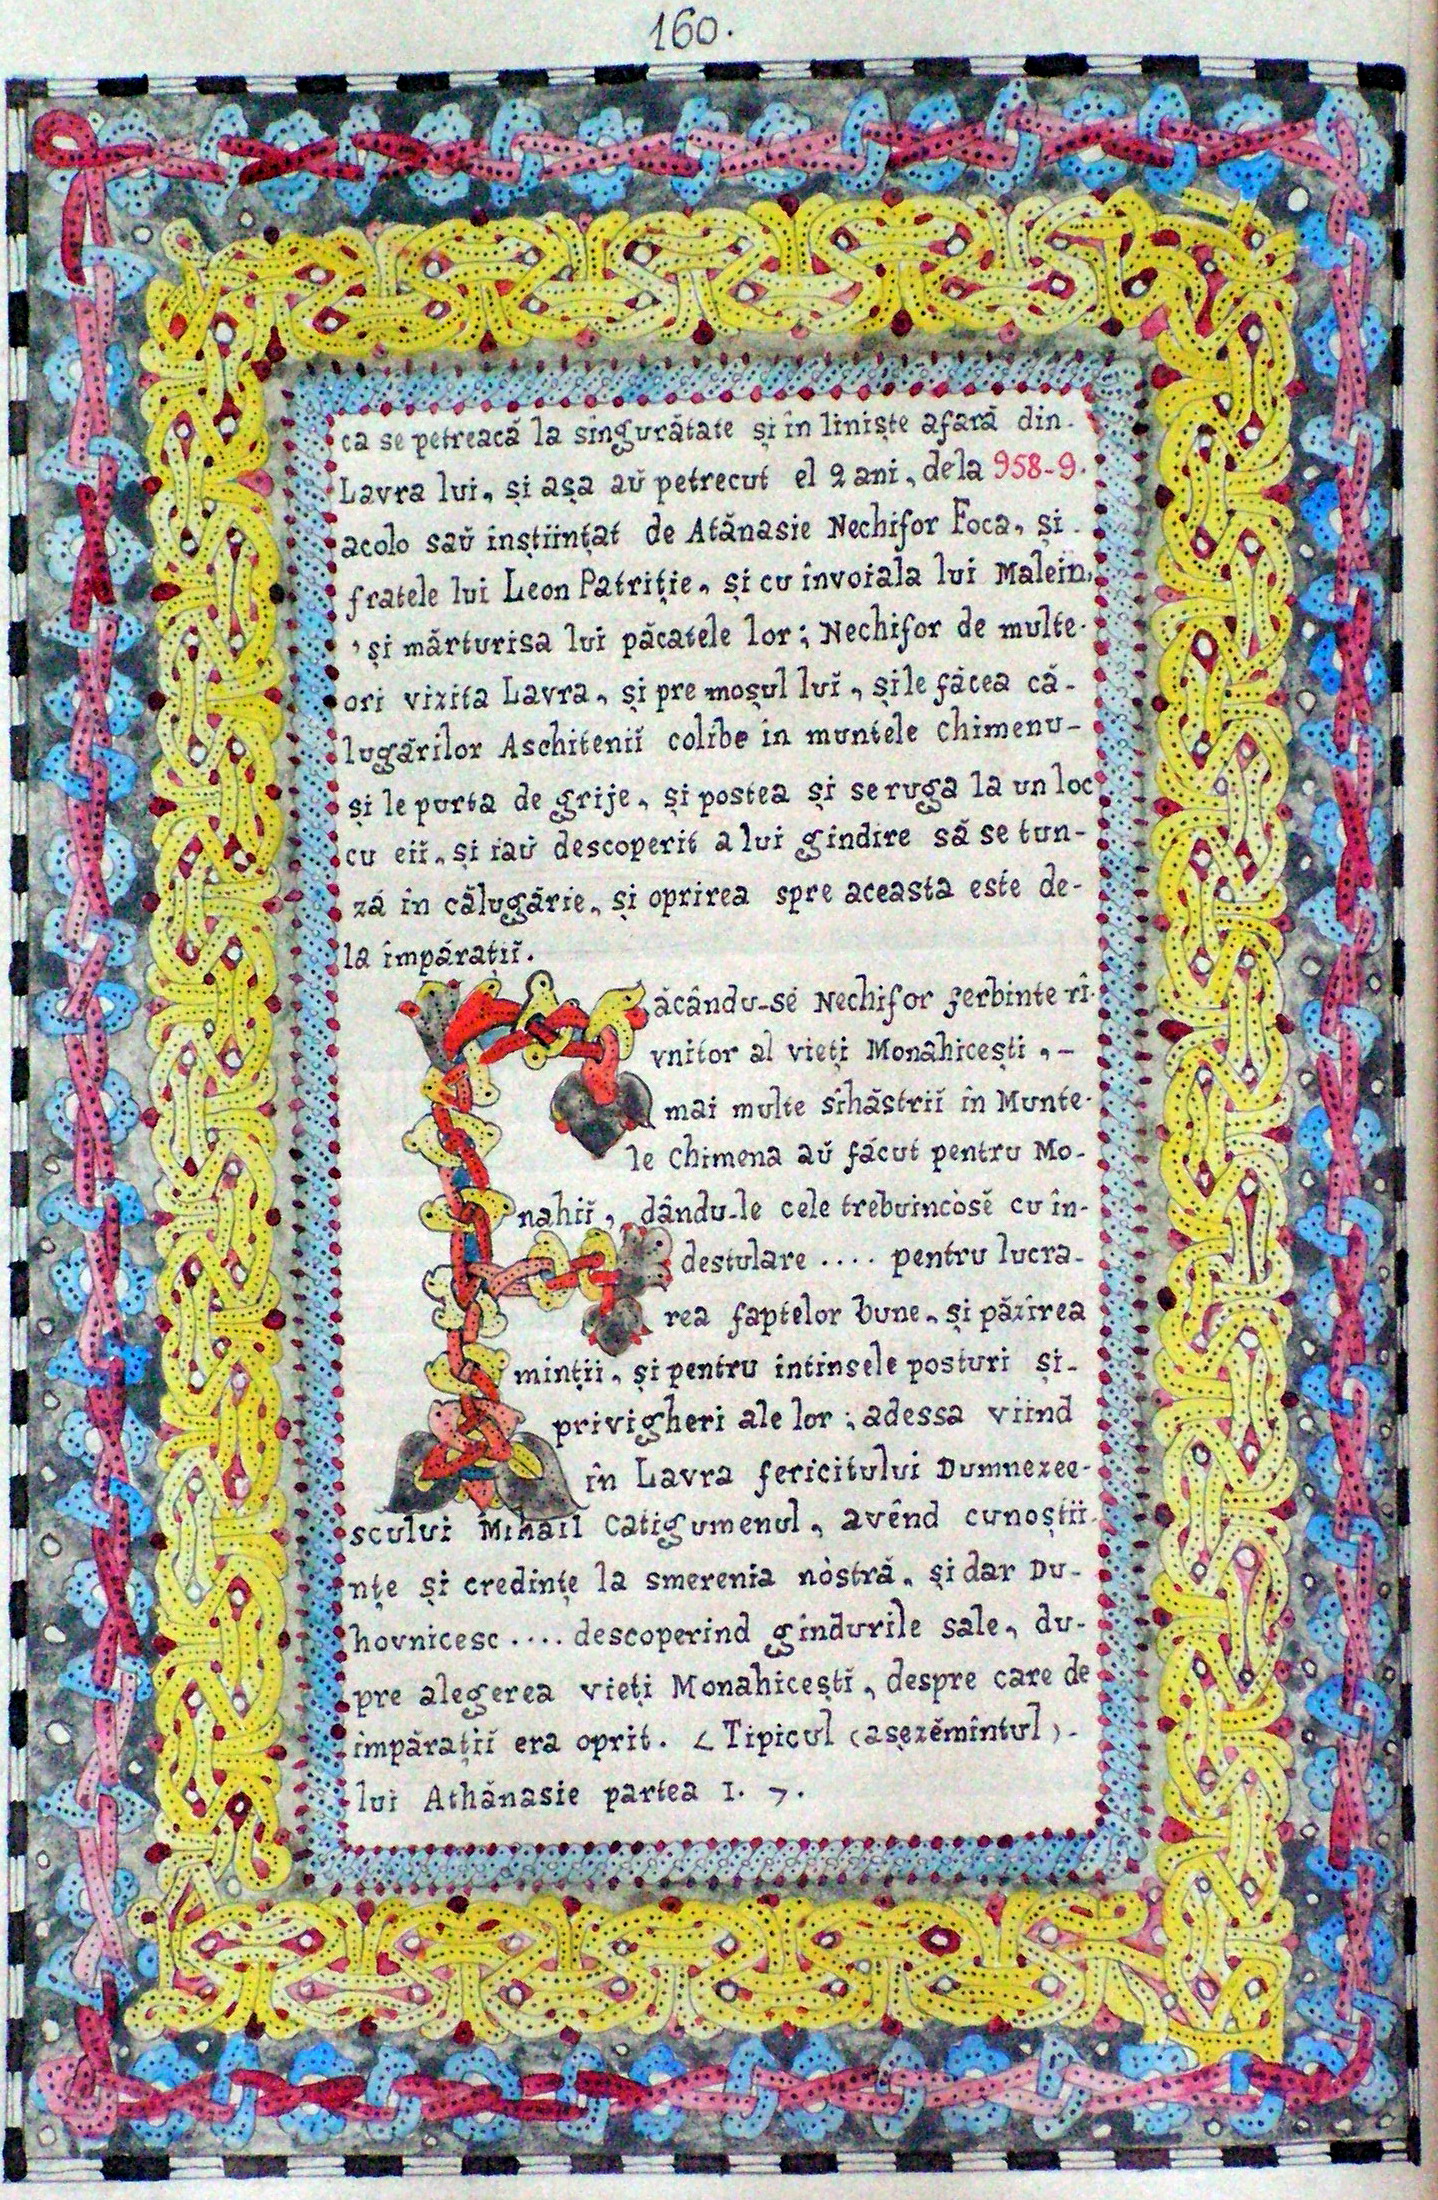 160.
ca se petreacă la singurătate și în liniște afară din-
Lavra lui, și așa aŭ petrecut el 2 ani, dela 958-9.
acolo saŭ inștiințat de Atănasie Nechifor Foca, și-
fratele lui Leon Patriție, și cu învoiala lui Malein,
'și mărturisa lui păcatele lor; Nechifor de multe-
ori vizita Lavra, și pre moșul luĭ, șile făcea că-
lugărilor Aschiteniĭ colibe in muntele Chimenu-
și le purta de grije, și postea și seruga la un loc
cu eiĭ, și iaŭ descoperit a lui gindire să se tun-
ză în călugărie, și oprirea spre aceasta este de-
la împărațiĭ.
Făcându-sĕ Nechifor ferbinte rî-
vnitor al vieți Monahicești, -
mai multe sîhăstriĭ în Munte-
le Chimena aŭ făcut pentru Mo-
nahiĭ, dându-le cele trebuincòsĕ cu în-
destulare .... pentru lucra-
rea faptelor bune, și păzirea
minții, și pentru intinsele posturi și-
privigheri ale lor; adessa viind
în Lavra fericitului Dumnezee-
scului Mihail Catigumenul, avênd cunoștii-
nțe și credințe la smerenia nòstră, și dar Du-
hovnicesc .... descoperind gindurile sale, du-
pre alegerea vieți Monahiceștĭ, despre care de
împărațiĭ era oprit. < Tipicul (așezĕmîntul)-
lui Athănasie partea I. >.